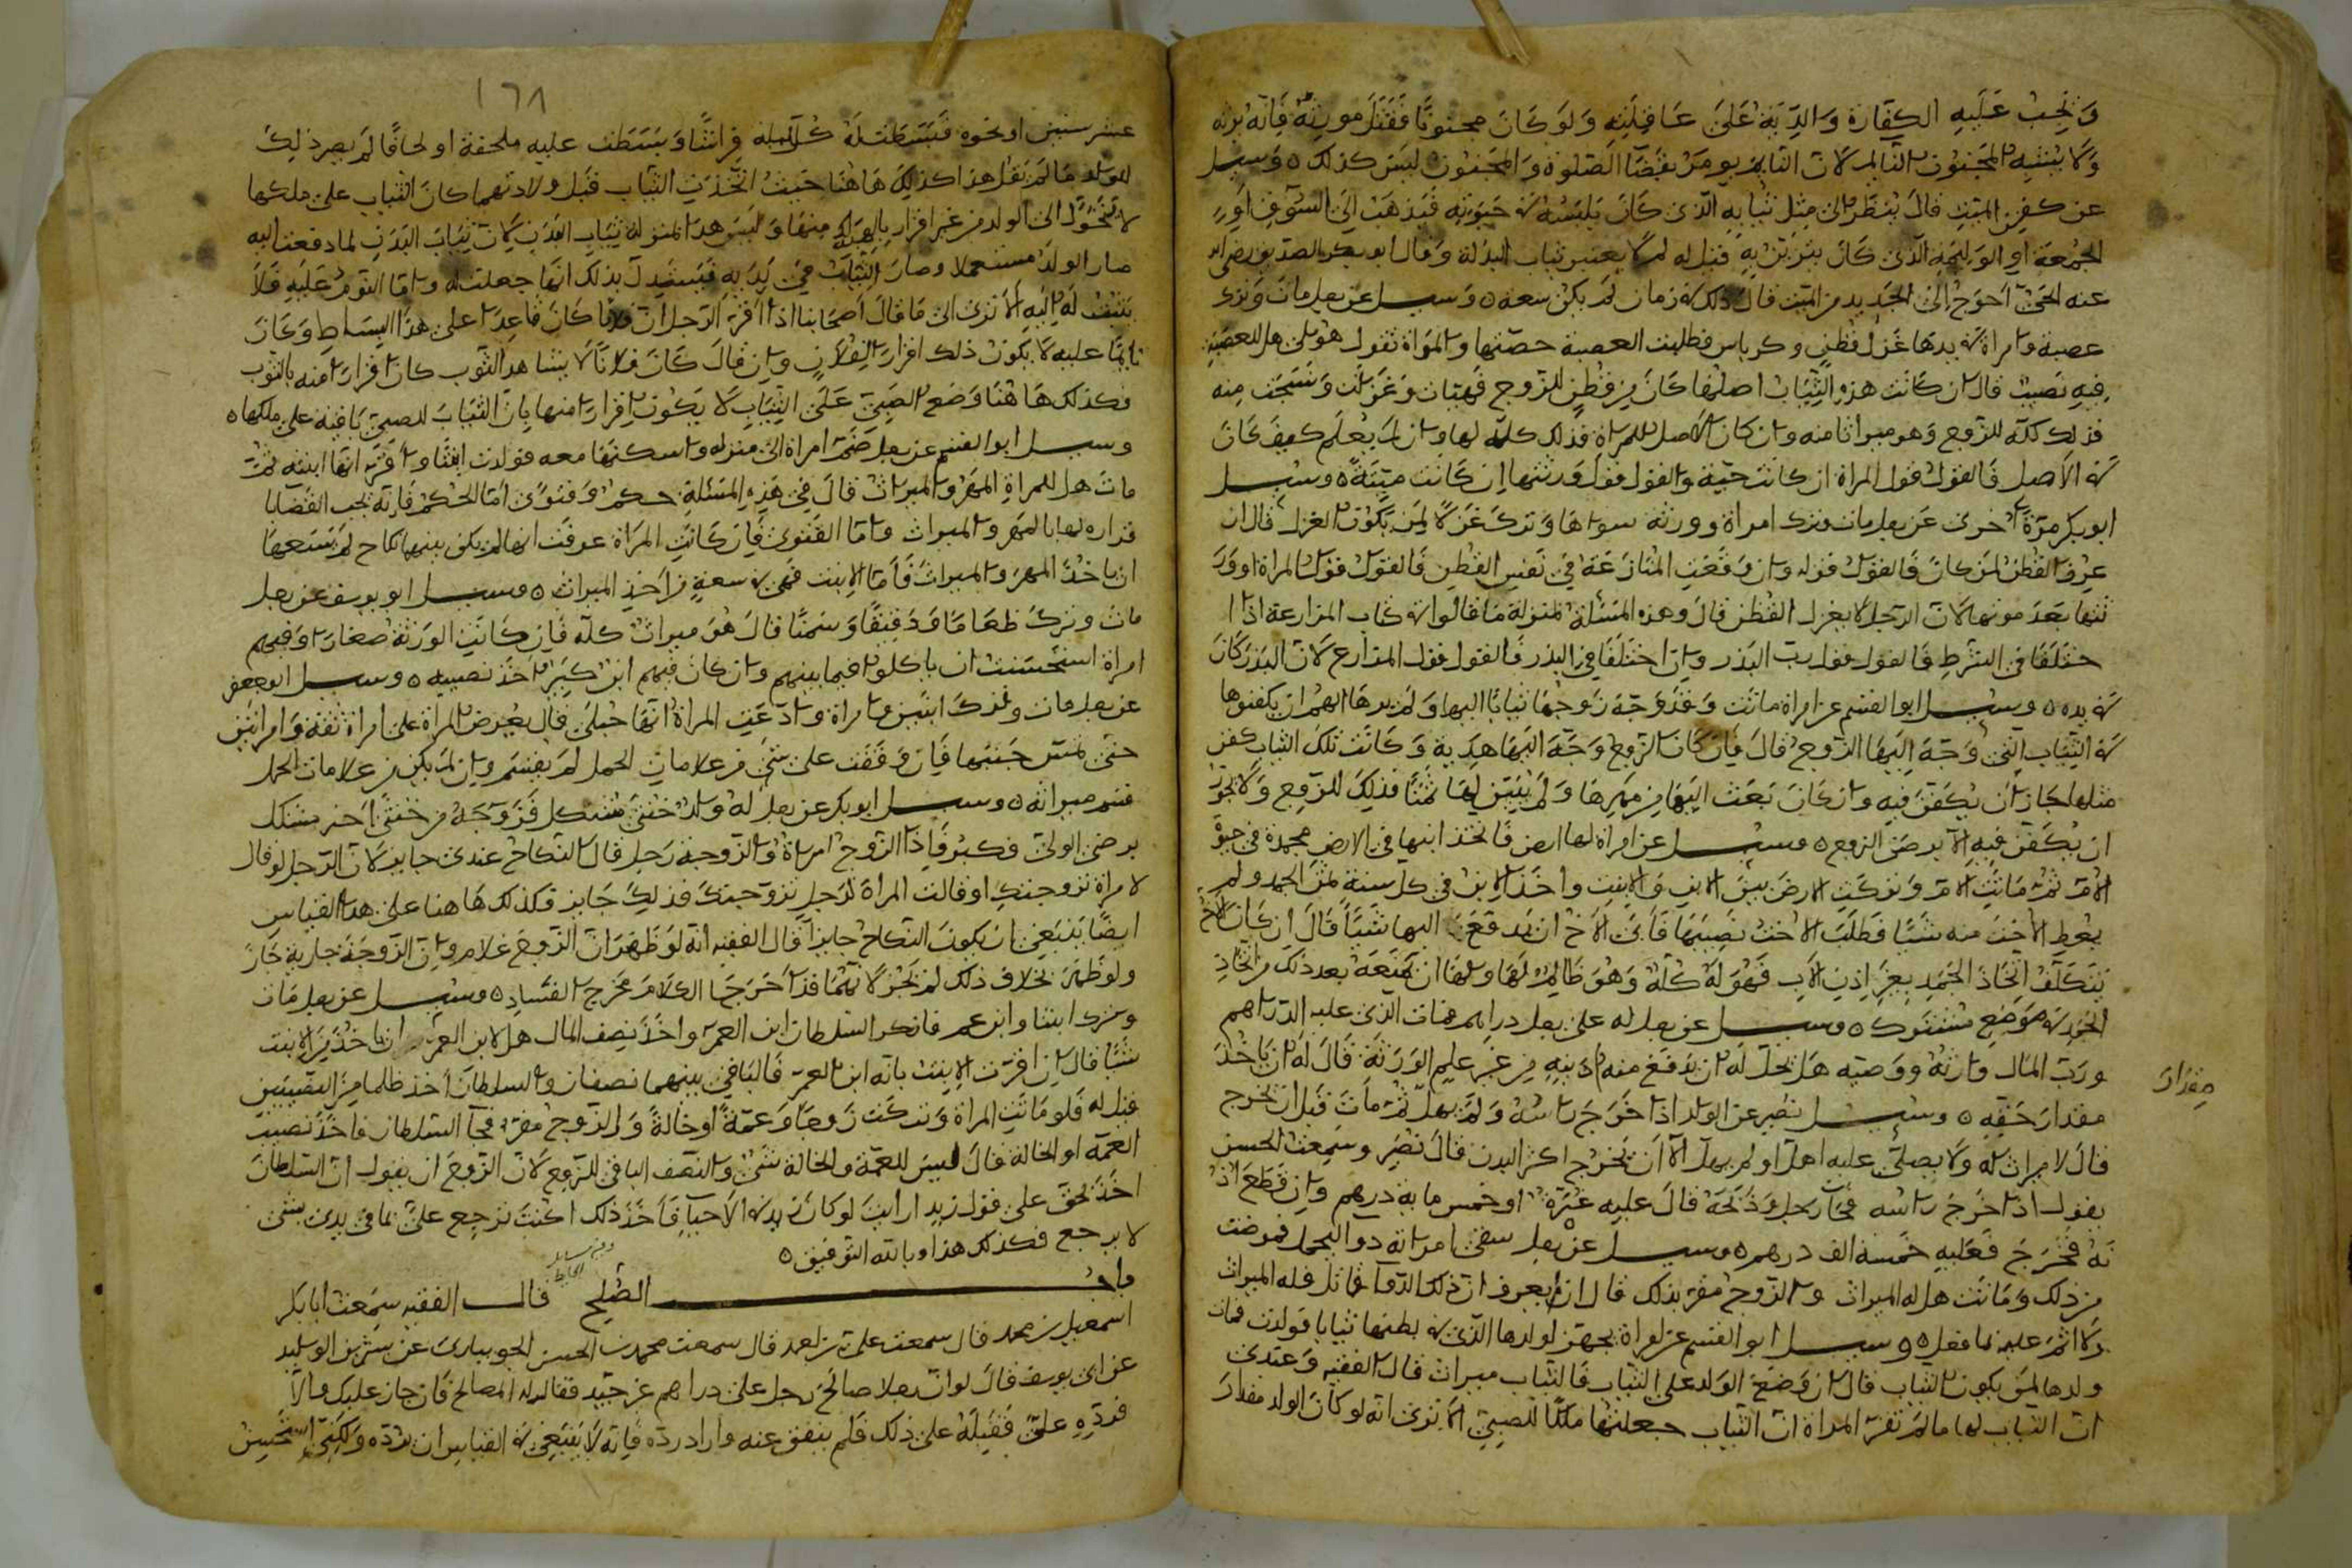 وتجب عليه الكفارة والدية على عاقلته ولو كان مجنونا فقتل مورثه فإنه يرثه
ولا يشبه المجنون النائم لان النائم يومر بقضا الصلوة والمجنون ليس كذلك ٥ وسيل
عن كفن الميت قال ينظر الى مثل ثيابه الذى كان يلبسه في حيوته فيذهب الى السوق او
الجمعة او الوليمة الذى كان يتزين به قيل له لم لا يعتبر ثياب البذلة وقال ابو بكر الصديق رضى الله
عنه الحى احوج الى الجديد من الميت قال ذلك في زمان لم يكن سعة ٥ وسيل عن رجل مات وترك
عصبة وامراة في يدها غزل قطن وكرباس فطلبت العصبة حصتها والمراة تقول هو لى هل للعصبة
فيه نصيب قال ان كانت هذه الثياب اصلها كان من قطن للزوج فهيات وغزلت ونسجت منه
فذلك كله للزوج وهو ميراثا منه وان كان الاصل للمراة فذلك كله لها وان لم يعلم كيف كان
في الاصل فالقول قول المراة ان كانت حية والقول قول ورثتها ان كانت ميتة ٥ وسيل
ابو بكر مرة اخرى عن رجل مات وترك امراة وورثة سواها وترك غزلا لمن يكون الغزل قال ان
عرف القطن لمن كان فالقول قوله وان وقعت المنازعة في نفس القطن فالقول قول المراة او ور
ثتها بعد موتها لان الرجل لا يغزل القطن قال وهذه المسئلة بمنزلة ما قالوا في كتاب المزارعة اذا ا
ختلفا في الشرط فالقول قول رب البذر وان اختلفا في البذر فالقول قول المزارع لان البذر كان
في يده ٥ وسيل ابو القسم عن امراة ماتت وقد وجه زوجها ثيابا اليها ولم يدرها الهم ان يكفنوها
في الثياب التى وجه اليها الزوج قال فان كان الزوج وجه اليها هدية وكانت تلك الثياب كفن
مثلها جاز ان يكفن فيه وان كان بعث اليها من مهرها ولم يبين لها ثمنا فذلك للزوج ولا يجوز
ان يكفن فيه الا برضى الزوج ٥ وسيل عن امراة لها ارض فاتخذ ابنها في الارض مجمدة في حيوة
الام ثم ماتت الام وتركت الارض بين الابن والابنت واخذ الابن في كل سنة ثمن الجمد ولم
يعط الاخت منه شيئا فطلبت الاخت نصيبها فابى الاخ ان يدفع اليها شيئا قال ان كان الاخ
يتكلف اتخاذ الجمد بغير اذن الاب فهو له كله وهو ظالم لها ولها ان تمنعه بعد ذلك من اتخاذ
الجمد في موضع مشترك ٥ وسيل عن رجل له على رجل دراهم فمات الذى عليه الدراهم
ورب المال وارثه ووصيه هل يحل له ان يدفع منه دينه من غير علم الورثة قال له ان ياخذ
مقدار
مقدار حقه ٥ وسيل نصير عن الولد اذا خرج راسه ولم يهل ثم مات قبل ان يخرج
قال لا ميراث له ولا يصلى عليه اهل او لم يهل الا ان يخرج اكثر البدن قال نصير وسمعت الحسن
يقول اذا خرج راسه فجا رجل وذبحه قال عليه غرة او خمس ماية درهم وان قطع اذ
نه فخرج فعليه خمسة الف درهم ٥ وسيل عن رجل سقى امراته دوا للحمل فمرضت
من ذلك وماتت هل له الميراث والزوج مقر بذلك قال ان لم يعرف ان ذلك الدوا قاتل فله الميراث
ولا اثم عليه بما فعل ٥ وسيل ابو القسم عن امراة تجهز لولدها الذى في بطنها ثيابا فولدت فمات
ولدها لمن يكون الثياب قال ان وضع الولد على الثياب فالثياب ميراث قال الفقيه وعندى
ان الثياب لها ما لم تقر المراة ان الثياب جعلتها ملكا للصبى الا ترى انه لو كان الولد مقدار
١٦٨
عشر سنين او نحوه فبسطت له كل ليلة فراشا وبسطت عليه ملحفة او لحافا لم يصر ذلك
للولد ما لم تقل هذا كذلك هاهنا حيث اتخذت الثياب قبل ولادتهما كان الثياب على ملكها
لا يتحول الى الولد من غير اقرار بالهبة منها وليس هذا بمنزلة ثياب البدن لان ثياب البدن لما دفعت اليه
صار الولد مستعملا وصار الثياب في يديه فيستدل بذلك انها جعلت له واما النوم عليه فلا
يثبت له اليد الا ترى الى ما قال اصحابنا اذا اقر الرجل ان فلانا كان قاعدا على هذا البساط وكان
نايما عليه لا يكون ذلك اقرارا لفلان وان قال كان فلانا لابسا هذا الثوب كان اقرارا منه بالثوب
فكذلك هاهنا وضع الصبى على الثياب لا يكون اقرارا منها بان الثياب للصبى باقية على ملكها ٥
وسيل ابو القسم عن رجل ضم امراة الى منزله واسكنها معه فولدت ابنتا واقر انها ابنته ثم
مات هل للمراة المهر والميراث قال في هذه المسئلة حكم وفتوى اما الحكم فانه يجب القضايا
قراره لها بالمهر والميراث واما الفتوى فان كانت المراة عرفت انه لم يكن بينهما نكاح لم يسعها
ان ياخذ المهر والميراث فاما الابنت فهى في سعة من اخذ الميراث ٥ وسيل ابو يوسف عن رجل
مات وترك طعاما ودقيقا وسمنا قال هو ميراث كله فان كانت الورثة صغارا وفيهم
امراة استحسنت ان ياكلوا فيما بينهم وان كان فيهم ابن كبير اخذ نصيبه ٥ وسيل ابو جعفر
عن رجل مات وترك ابنين وامراة وادعت المراة انها حبلى قال يعرض المراة على امراة ثقة وامراتين
حتى تمس جنبها فان وقفت على شى من علامات الحمل لم يقسم وان لم يكن من علامات الحمل
قسم ميراثه ٥ وسيل ابو بكر عن رجل له ولد خنثى مشكل فزوجه من خنثى اخر مشكل
برضى الولى فكبر فاذا الزوج امراة والزوجة رجل قال النكاح عندى جايز لان الرجل لو قال
لامراة تزوجتك او قالت المراة لرجل تزوجتك فذلك جايز فكذلك هاهنا على هذا القياس
ايضا ينبغى ان يكون النكاح جايزا قال الفقيه انه لو ظهر ان الزوج غلام وان الزوجة جارية جاز
ولو ظهر بخلاف ذلك لم يجز لانهما قد اخرجا الكلام مخرج الفساد ٥ وسيل عن رجل مات
وترك ابنتا وابن عم فانكر السلطان ابن العم واخذ نصف المال هل لابن العم ان ياخذ من الابنت
شيئا قال ان اقرت الابنت بانه ابن العم فالباقى بينهما نصفان والسلطان اخذ ظلما من النصيبين
قيل له فلو ماتت المراة وتركت زوجا وعمة او خالة والزوج مقر فجا السلطان فاخذ نصيب
العمة او الخالة قال ليس للعمة والخالة شى والنصف الباقى للزوج لان الزوج ان يقول ان السلطان
اخذ بحق على قول زيد ارايت لو كان زيد في الاحيا فاخذ ذلك اكنت ترجع على بما في يدى بشى
لا يرجع فكذلك هذا وبالله التوفيق ٥
باب الصلح قال الفقيه سمعت ابا بكر
اسمعيل بن محمد قال سمعت على بن احمد قال سمعت محمد بن الحسن الجويبارى عن بشر بن الوليد
عن ابى يوسف قال لو ان رجلا صالح رجل على دراهم غير جيد فقال له المصالح فان جاز عليك والا
فرده على فقبله على ذلك فلم ينفق عنه واراد رده فانه لا ينبغى في القياس ان يرده ولكنى استحسن